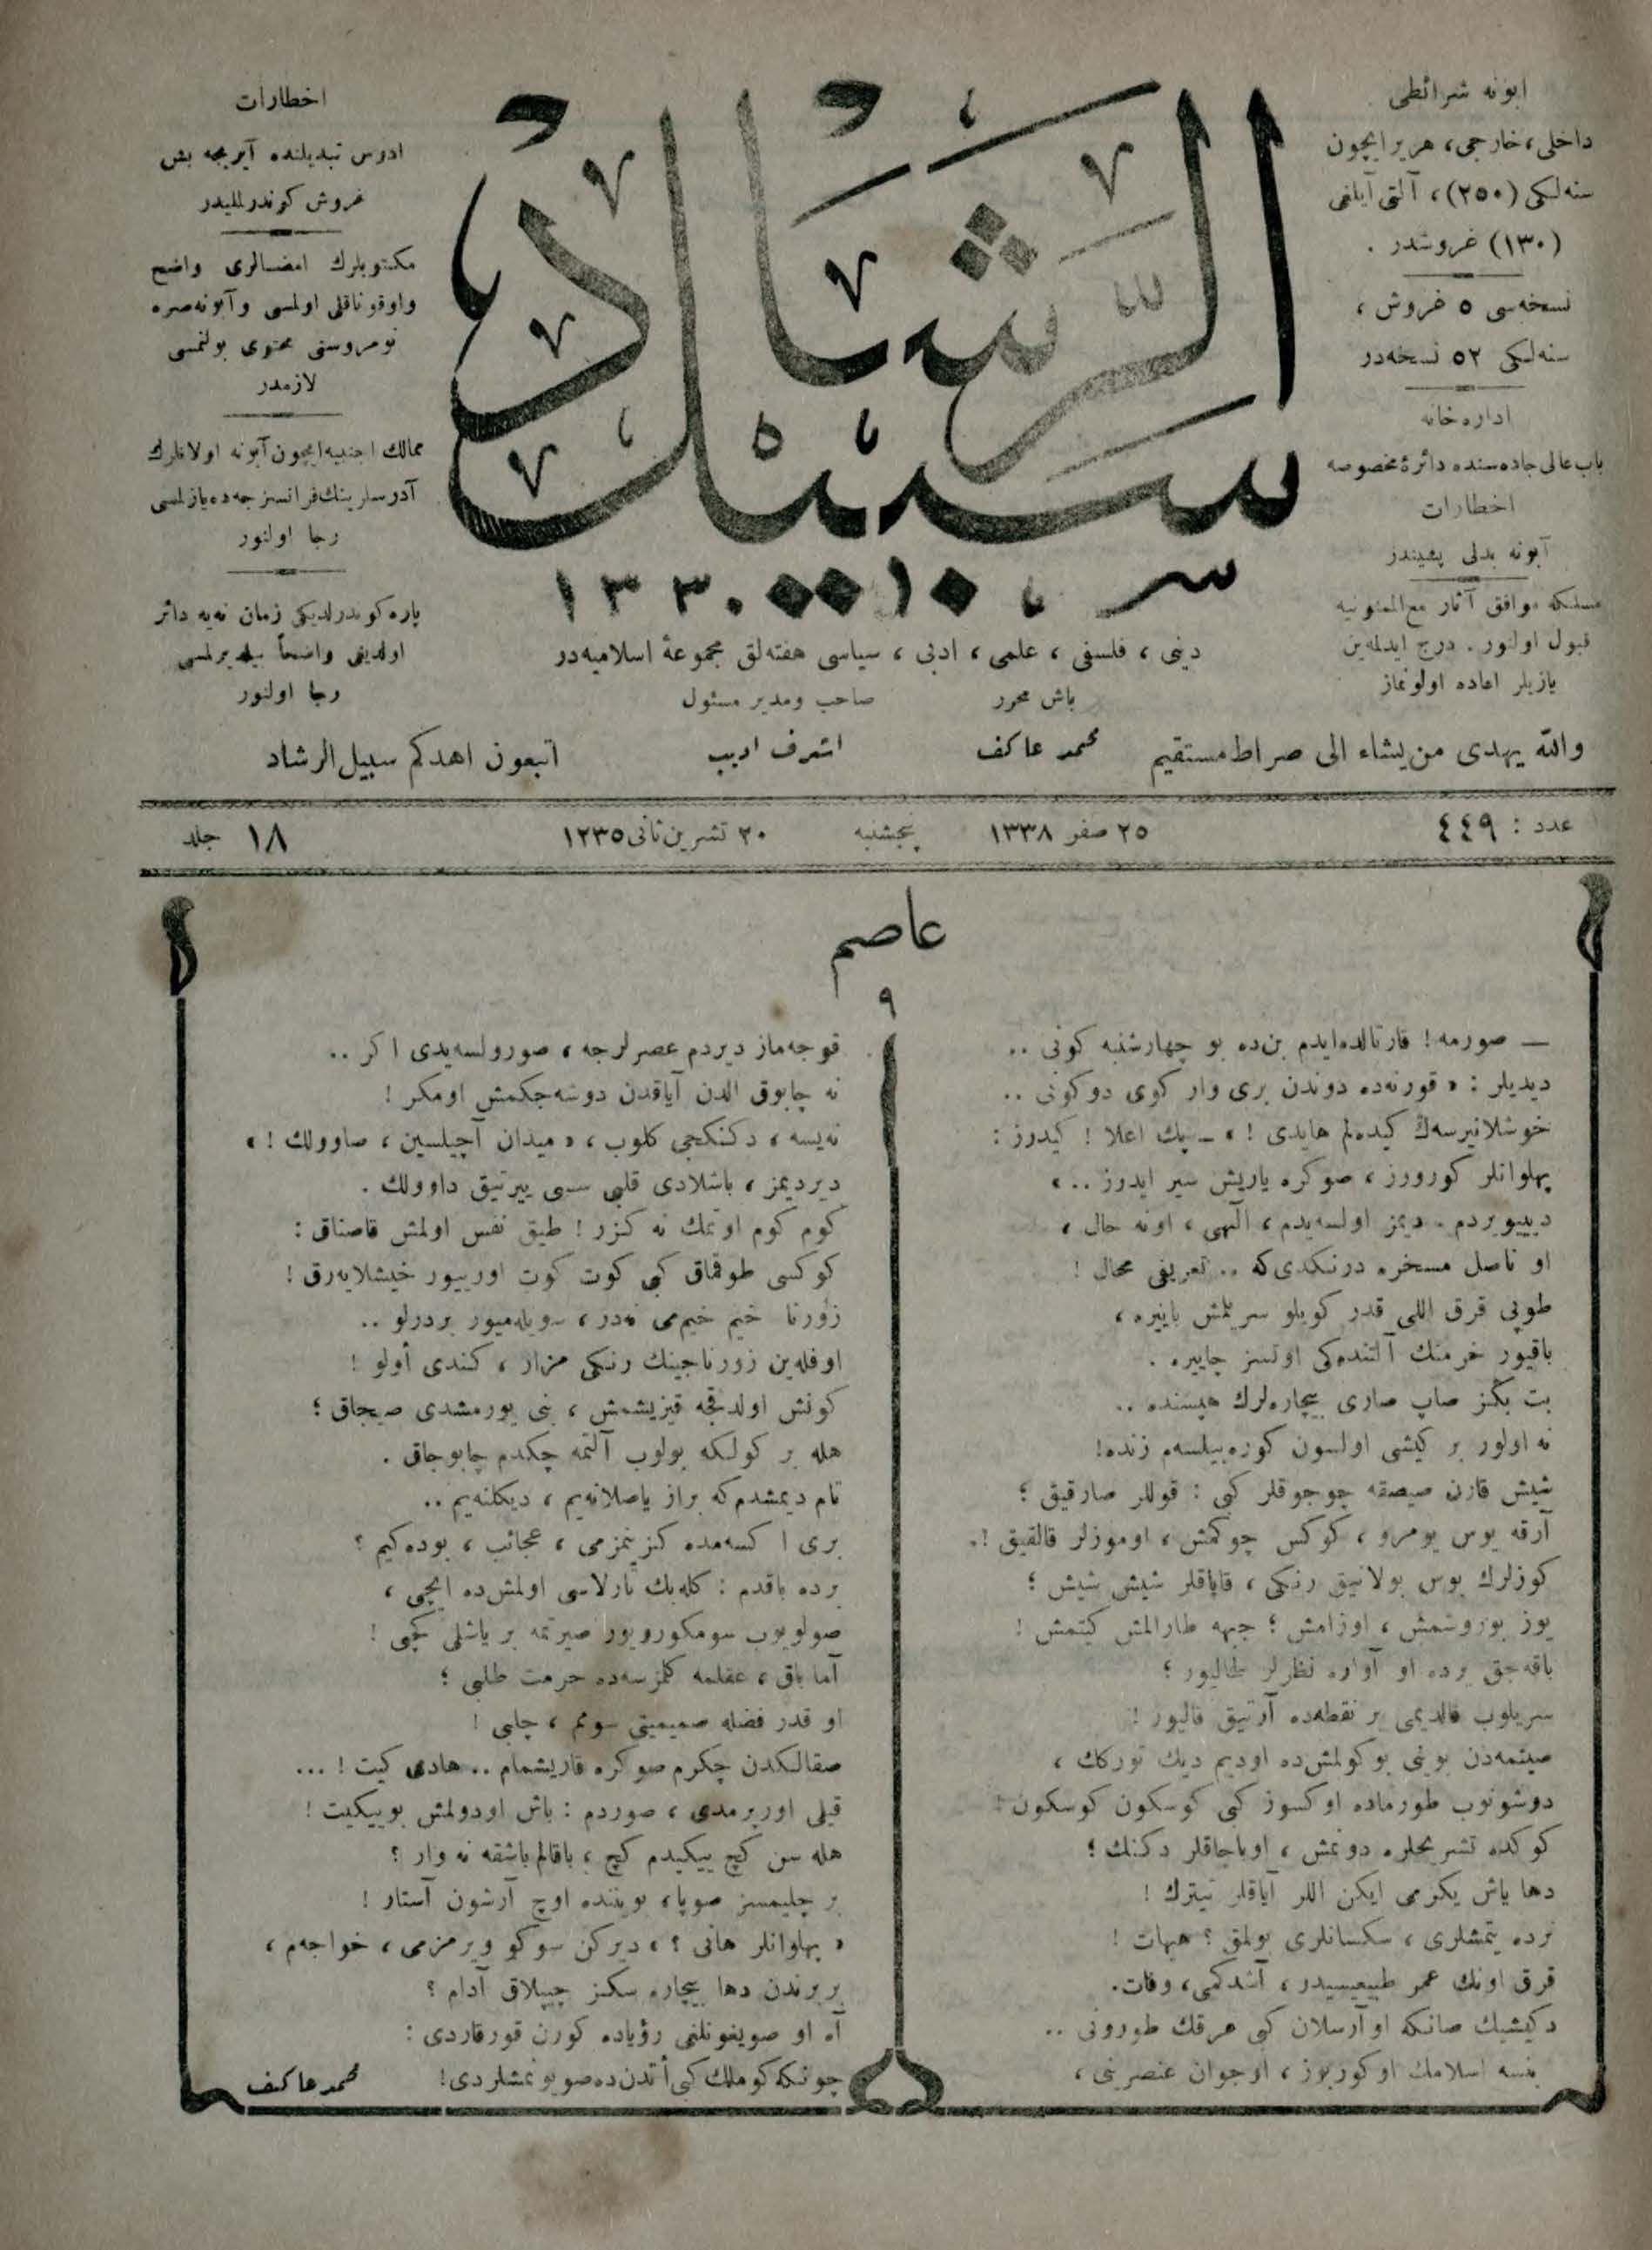 ابونه شرائطی
داخلی، خارجی، هریر ایچون
سنه‌لكی (٢٥٠)، آلتی آیلغی
(١٣٠) غروشدر .
نسخه‌سی ٥ غروش ،
سنه‌لكی ٥٢ نسخه‌در
اداره‌خانه
باب عالی جاده‌سنده دائرۀ مخصوصه
اخطارات
آبونه بدلی پشیندر
مسلكه موافق آثار مع‌الممنونیه
قبول اولنور . درج ایدلمه‌ین
یازیلر اعاده اولونماز
سبیل الرشاد
١٣٣٠
دینی ، فلسفی ، علمی ، ادبی ، سیاسی هفته‌لق مجموعۀ اسلامیه‌در
باش محرر
محمد عاكف
صاحب ومدیر مسئول
اشرف ادیب
اخطارات
ادرس تبدیلنده آیریجه بش
غروش كوندرلملیدر
مكتوبلرك امضالری واضح
واوقوناقلی اولمسی وآبونه‌صره
نومروسنی محتوی بولنمسی
لازمدر
ممالك اجنبیه ایچون آبونه اولانلرك
آدرسلرینك فرانسزجه‌ده یازلمسی
رجا اولنور
پاره كوندرلدیكی زمان نه‌یه دائر
اولدیغی واضحاً بیلدیرلمسی
رجا اولنور
والله یهدی من یشاء الی صراط مستقیم
اتبعون اهدكم سبیل الرشاد
عدد : ٤٤٩
٢٥ صفر ١٣٣٨
پنجشنبه
٢٠ تشرین ثانی ١٢٣٥
جلد ١٨
عاصم
٩
— صورمه! قارتالده‌ایدم بن‌ده بو چهارشنبه كونی ..
دیدیلر : « قورنه‌ده دوندن بری وار كوی دوكونی ..
خوشلانیرسه‌ڭ كیده‌لم هایدی ! » – پك اعلا ! كیدرز :
پهلوانلر كورورز ، صوكره یاریش سیر ایدرز .. »
دییویردم . دیمز اولسه‌یدم ، الٓهی ، اونه حال ،
او ناصل مسخره درنكدی‌كه .. تعریفی محال !
طوپی قرق اللی قدر كویلو سریلمش باییره ،
باقیور خرمنك آلتنده‌كی اوتسز چاییره .
بت بڭز صاپ صاری بیچاره‌لرك هپسنده ..
نه اولور بر كیشی اولسون كوره‌بیلسه‌م زنده!
شیش قارن صیصقه چوجوقلر كبی : قوللر صارقیق ؛
آرقه یوس یومرو ، كوكس چوكمش ، اوموزلر قالقیق !.
كوزلرك بوس بولانیق رنكی ، قاپاقلر شیش شیش ؛
یوز بوروشمش ، اوزامش ؛ جبهه طارالمش كیتمش !
باقه‌جق یرده او آواره نظرلر طالیور ؛
سریلوب قالدیمی بر نقطه‌ده آرتیق قالیور !
صیتمه‌دن بونی بوكولمش‌ده اودیم دیك توركك ،
دوشونوب طورماده اوكسوز كبی كوسكون كوسكون!
كوكده تشریحلره دونمش ، اوباجاقلر دكنك ؛
دها یاش یكرمی ایكن اللر آیاقلر تیترك !
نرده یتمشلری ، سكسانلری بولمق ؟ هیهات !
قرق اونك عمر طبیعیسیدر ، آشدكمی، وفات.
دكیشیك صانكه اوآرسلان كبی عرقك طورونی ..
ینسه اسلامك اوكوربوز ، اوجوان عنصرینی ،
قوجه‌ماز دیردم عصرلرجه ، صورولسه‌یدی اكر ..
نه چابوق الدن آیاقدن دوشه‌جكمش اومكر !
نه‌یسه ، دكنكجی كلوب ، « میدان آچیلسین ، صاوولك ! »
دیردیمز ، باشلادی قلبی سسی ییرتیق داوولك .
كوم كوم اوتمك نه كزر ! طیق نفس اولمش قاصناق :
كوكسی طوقماق كبی كوت كوت اورییور خیشلایه‌رق !
زورنا خیم خیم‌می نه‌در ، سویله‌میور بردرلو ..
اوفله‌ین زورناجینك رنكی مزار ، كندی اولو !
كونش اولدقجه قیزیشمش ، بنی یورمشدی صیجاق ؛
هله بر كولكه بولوب آلتمه چكدم چابوجاق .
تام دیمشدم‌كه براز یاصلانه‌یم ، دیكلنه‌یم ..
بری ا كسه‌مده كزینمزمی ، عجائب ، بوده‌كیم ؟
برده باقدم : كله‌بك تارلاسی اولمش‌ده ایچی ،
صولویوب سومكورویور صیرتمه بر یاشلی كچی !
آما باق ، عقلمه كلمزسه‌ده حرمت طلبی ؛
او قدر فضله صمیمیتی سومم ، چلبی !
صقالكدن چكرم صوكره قاریشمام .. هادی كیت ! ...
قیلی اورپرمدی ، صوردم : باش اودولمش بوییكیت !
هله سن كچ ییكیدم كچ ، باقالم باشقه نه وار ؟
بر چلیمسز صوپا، بویننده اوچ آرشون آستار !
« پهلوانلر هانی ؟ » دیركن سوكو ویرمزمی ، خواجه‌م ،
بربرندن دها بیچاره سكز چیپلاق آدام ؟
آه او صویغونلغی رؤیاده كورن قورقاردی :
چونكه كوملك كبی أتدن‌ده صویونمشلردی!
محمد عاكف